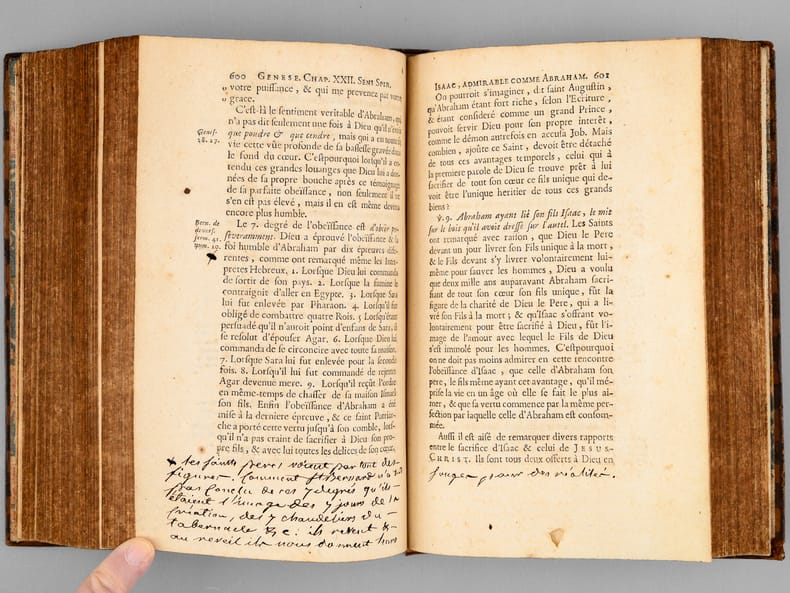 600 GENESE. CHAP. XXII. SENS SPIR.
„ votre puissance, & qui me prevenez par votre
„ grace.
C'est-là le sentiment veritable d'Abraham, qui
n'a pas dit seulement une fois à Dieu qu'il n'étoit
Genes.
18. 27.
que poudre & que cendre, mais qui a eu toute sa
vie cette vûe profonde de sa bassesse gravée dans
le fond du cœur. C'est pourquoi lorsqu'il a en-
tendu ces grandes louanges que Dieu lui a don-
nées de sa propre bouche après ce témoignage
de sa parfaite obeïssance, non seulement il ne
s'en est pas élevé, mais il en est même devenu
encore plus humble.
Bern. de
divers.
serm. 41.
num. 10.
Le 7. degré de l'obeïssance est d'obeir per-
severamment. Dieu a éprouvé l'obeïssance & la
foi humble d'Abraham par dix épreuves diffe-
rentes, comme ont remarqué même les Inter-
pretes Hebreux. 1. Lorsque Dieu lui commanda
de sortir de son pays. 2. Lorsque la famine le
contraignit d'aller en Egypte. 3. Lorsque Sara
lui fut enlevée par Pharaon. 4. Lorsqu'il fut
obligé de combattre quatre Rois. 5. Lorsqu'étant
persuadé qu'il n'auroit point d'enfans de Sara, il
se resolut d'épouser Agar. 6. Lorsque Dieu lui
commanda de se circoncire avec toute sa maison.
7. Lorsque Sara lui fut enlevée pour la seconde
fois. 8. Lorsqu'il lui fut commandé de rejetter
Agar devenue mere. 9. Lorsqu'il reçût l'ordre
en même-temps de chasser de sa maison Ismael
son fils. Enfin l'obeïssance d'Abraham a été
mise à la derniere épreuve, & ce saint Patriar-
che a porté cette vertu jusqu'à son comble, lors-
qu'il n'a pas craint de sacrifier à Dieu son pro-
pre fils, & avec lui toutes les delices de son cœur.
les saints peres voient par tout des
figures. Comment St Bernard n'a t'il
pas conclu de ces 7 degrés qu'ils
étaient l'image des 7 jours de la
création, des 7 chandeliers du
tabernacle &c: ils revent &
au reveil ils nous donnent leurs
ISAAC, ADMIRABLE COMME ABRAHAM. 601
On pourroit s'imaginer, dit saint Augustin,
qu'Abraham étant fort riche, selon l'Ecriture,
& étant consideré comme un grand Prince,
pouvoit servir Dieu pour son propre interêt,
comme le démon autrefois en accusa Job. Mais
combien, ajoûte ce Saint, devoit être détaché
de tous ces avantages temporels, celui qui à
la premiere parole de Dieu se trouve prêt à lui
sacrifier de tout son cœur ce fils unique qui de-
voit être l'unique heritier de tous ces grands
biens?
℣. 9. Abraham ayant lié son fils Isaac, le mit
sur le bois qu'il avoit dressé sur l'autel. Les Saints
ont remarqué avec raison, que Dieu le Pere
devant un jour livrer son Fils unique à la mort,
& le Fils devant s'y livrer volontairement lui-
même pour sauver les hommes, Dieu a voulu
que deux mille ans auparavant Abraham sacri-
fiant de tout son cœur son fils unique, fût la
figure de la charité de Dieu le Pere, qui a li-
vré son Fils à la mort; & qu'Isaac s'offrant vo-
lontairement pour être sacrifié à Dieu, fût l'i-
mage de l'amour avec lequel le Fils de Dieu
s'est immolé pour les hommes. C'est pourquoi
on ne doit pas moins admirer en cette rencontre
l'obeïssance d'Isaac, que celle d'Abraham son
pere, le fils même ayant cet avantage, qu'il mé-
prise la vie en un âge où elle se fait le plus ai-
mer, & que sa vertu commence par la même per-
fection par laquelle celle d'Abraham est consom-
mée.
Aussi il est aisé de remarquer divers rapports
entre le sacrifice d'Isaac & celui de JESUS-
CHRIST. Ils sont tous deux offerts à Dieu en
songes pour des réalités.